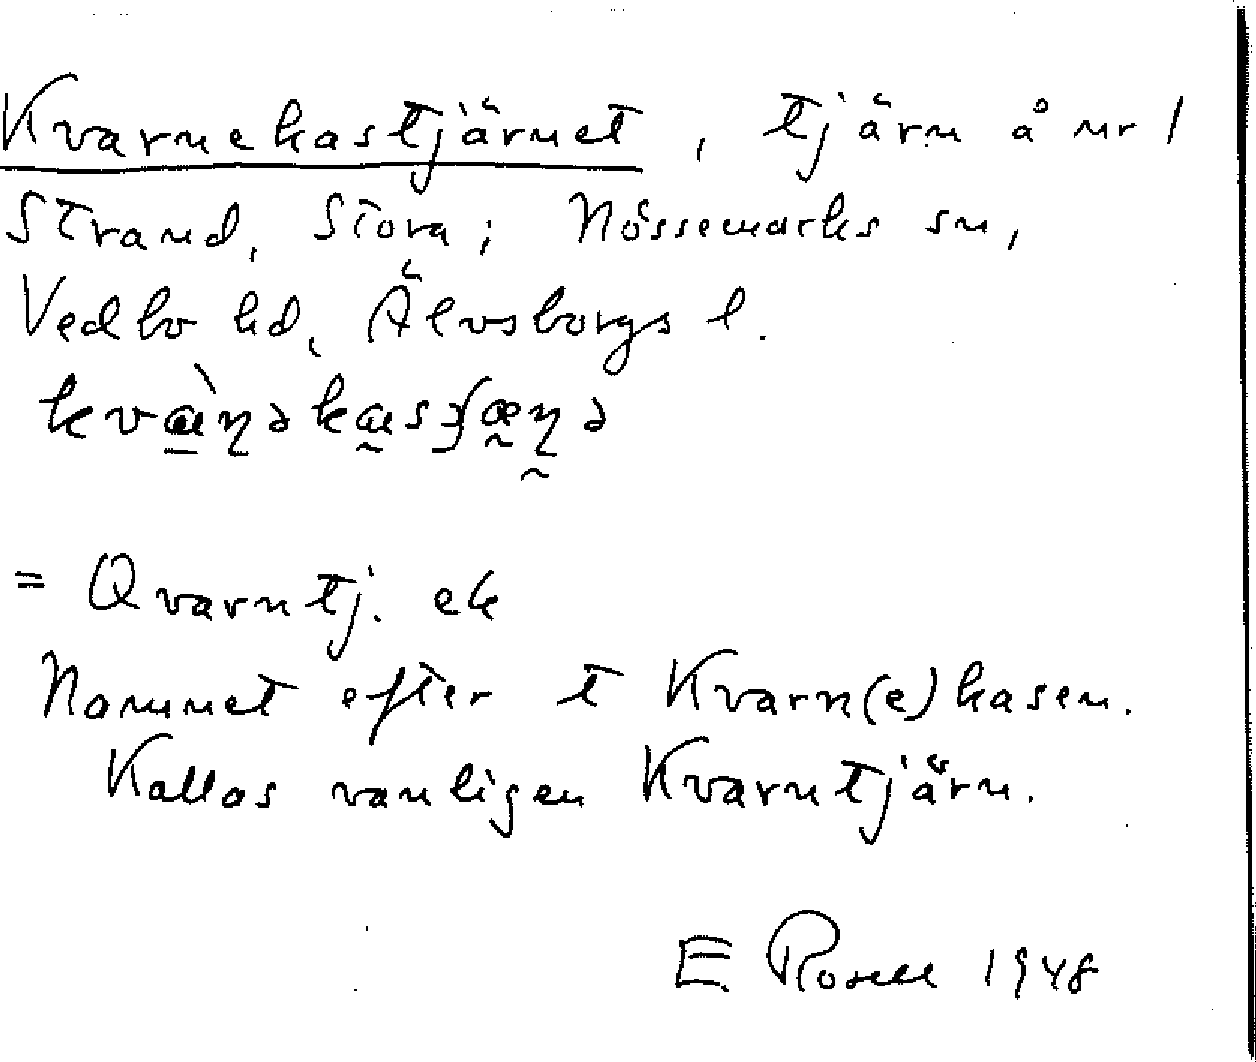 Kvarnekastjärnet, tjärn å nr 1
Strand, Stora; Nössemarks sn,
Vedbo hd, Älvsborgs l.
= Qvarntj. ek
Namnet efter t Kvarn(e)kasen.
Kallas vanligen Kvarntjärn.
E Rosell 1948